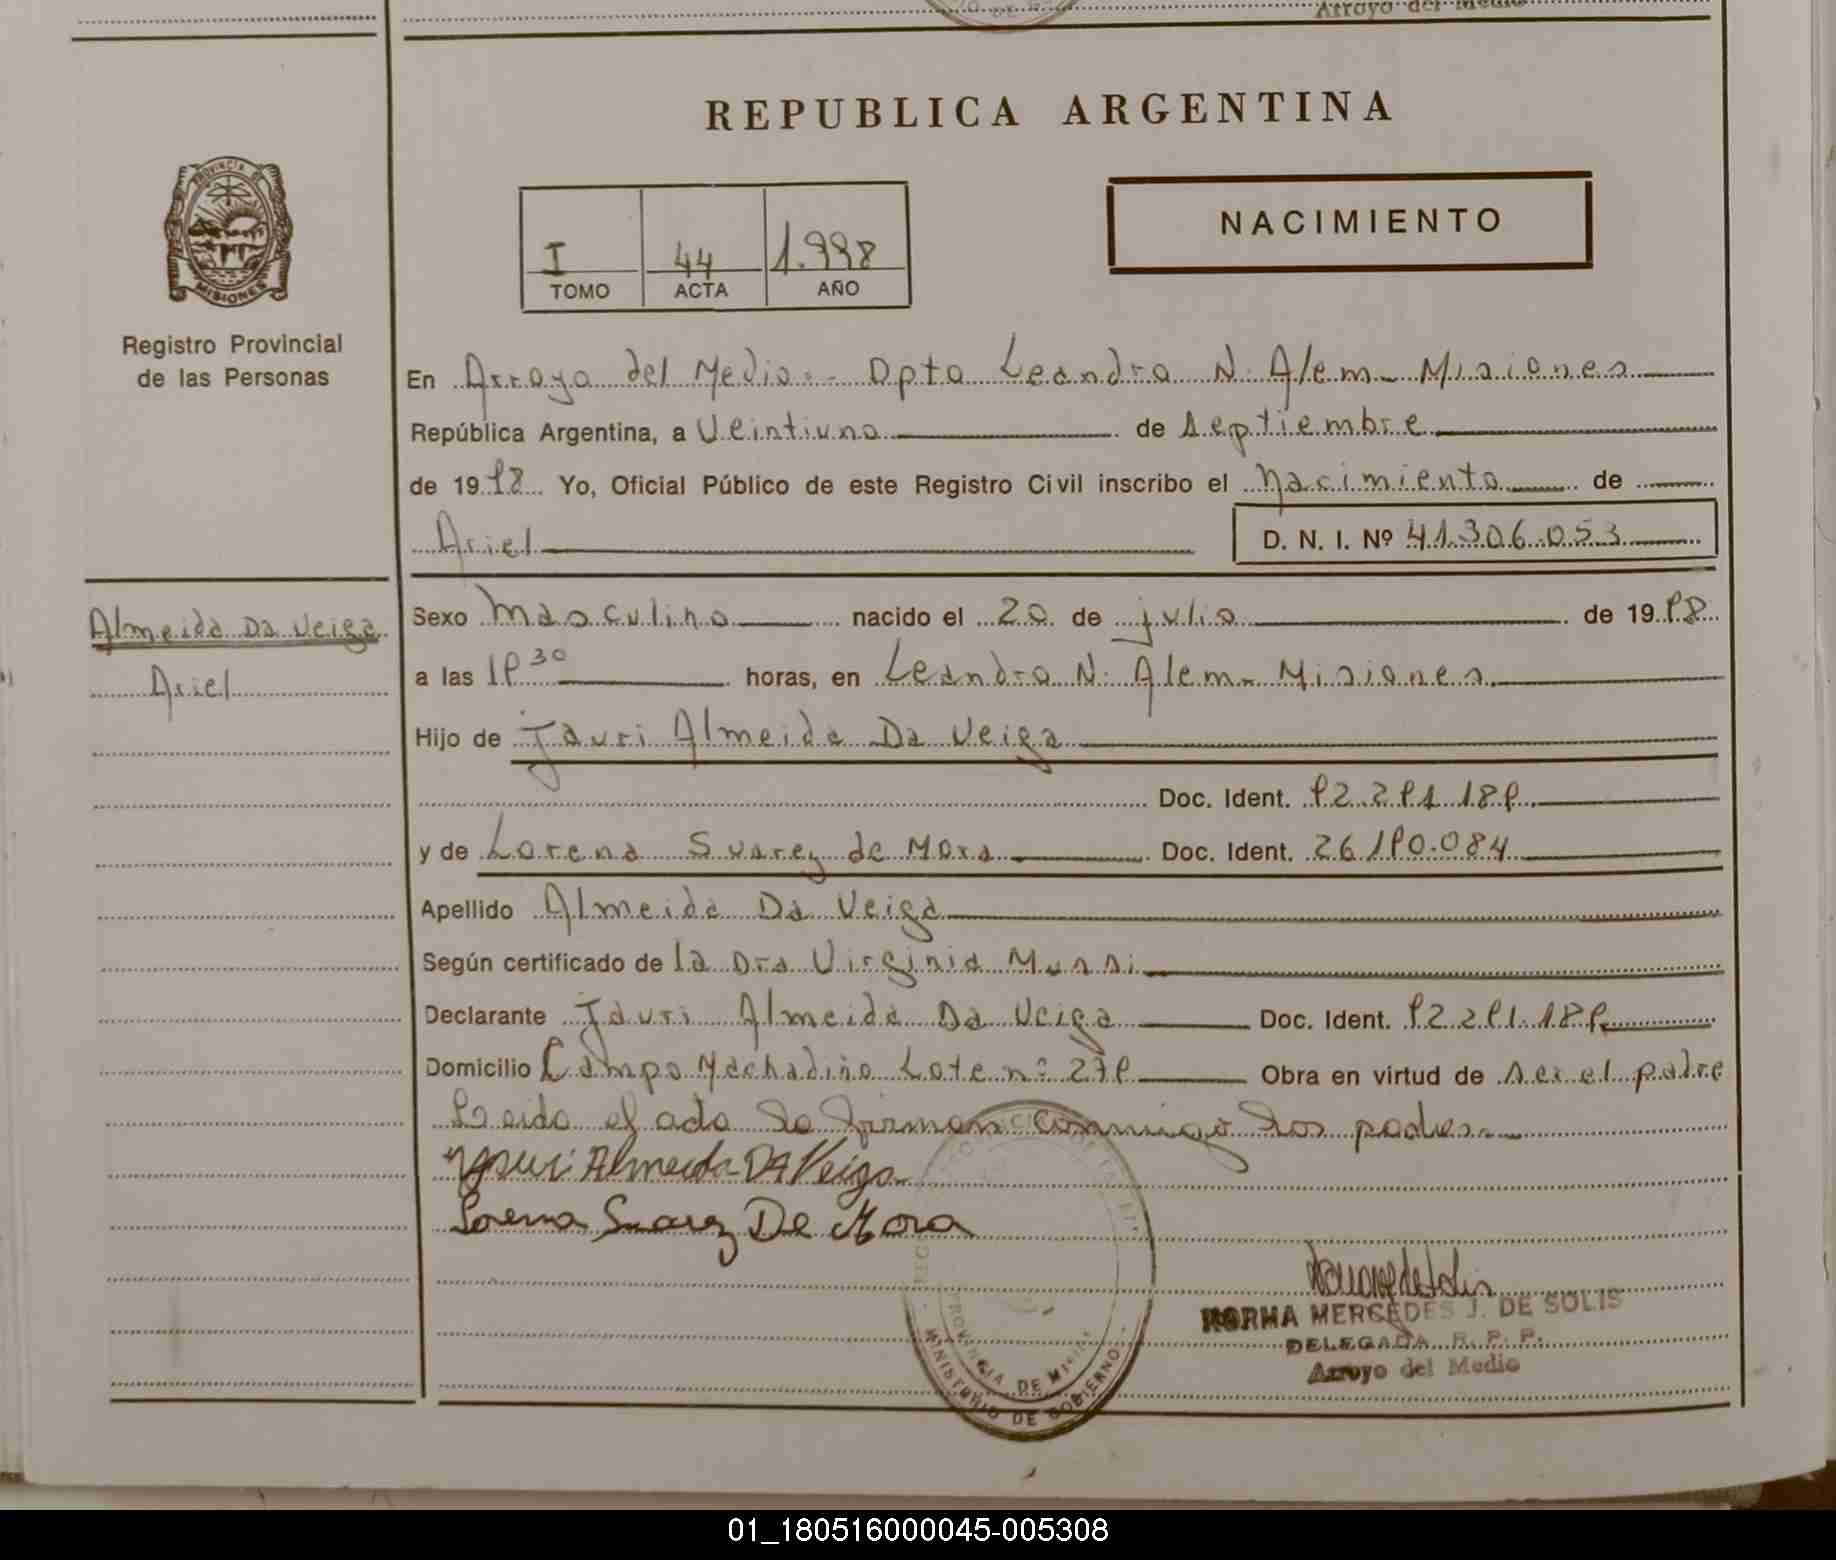 Arroyo del Medio
REPUBLICA ARGENTINA
PROVINCIA DE
MISIONES
Registro Provincial
de las Personas
I 44 1.998
TOMO ACTA AÑO
NACIMIENTO
En Arroyo del Medio.- Dpto Leandro N. Alem - Misiones
República Argentina, a Veintiuno de septiembre
de 1998 Yo, Oficial Público de este Registro Civil inscribo el nacimiento de
Ariel D. N. I. Nº 41.306.053
Almeida Da Veiga
Ariel
Sexo Masculino nacido el 20 de julio de 1998
a las 19 30 horas, en Leandro N. Alem - Misiones
Hijo de Jauri Almeida Da Veiga
Doc. Ident. 92.291.189
y de Lorena Suarez de Mora Doc. Ident. 26.190.084
Apellido Almeida Da Veiga
Según certificado de la Dra Virginia Mussi
Declarante Jauri Almeida Da Veiga Doc. Ident. 92.291.189
Domicilio Campo Machadiño Lote nº 279 Obra en virtud de ser el padre
Leido el acta la firman conmigo los padres.-
Jauri Almeida DA Veiga
Lorena Suarez De Mora
NORMA MERCEDES J. DE SOLIS
DELEGADA R. P. P.
Arroyo del Medio
PROVINCIA DE MISIONES
MINISTERIO DE GOBIERNO
01_180516000045-005308